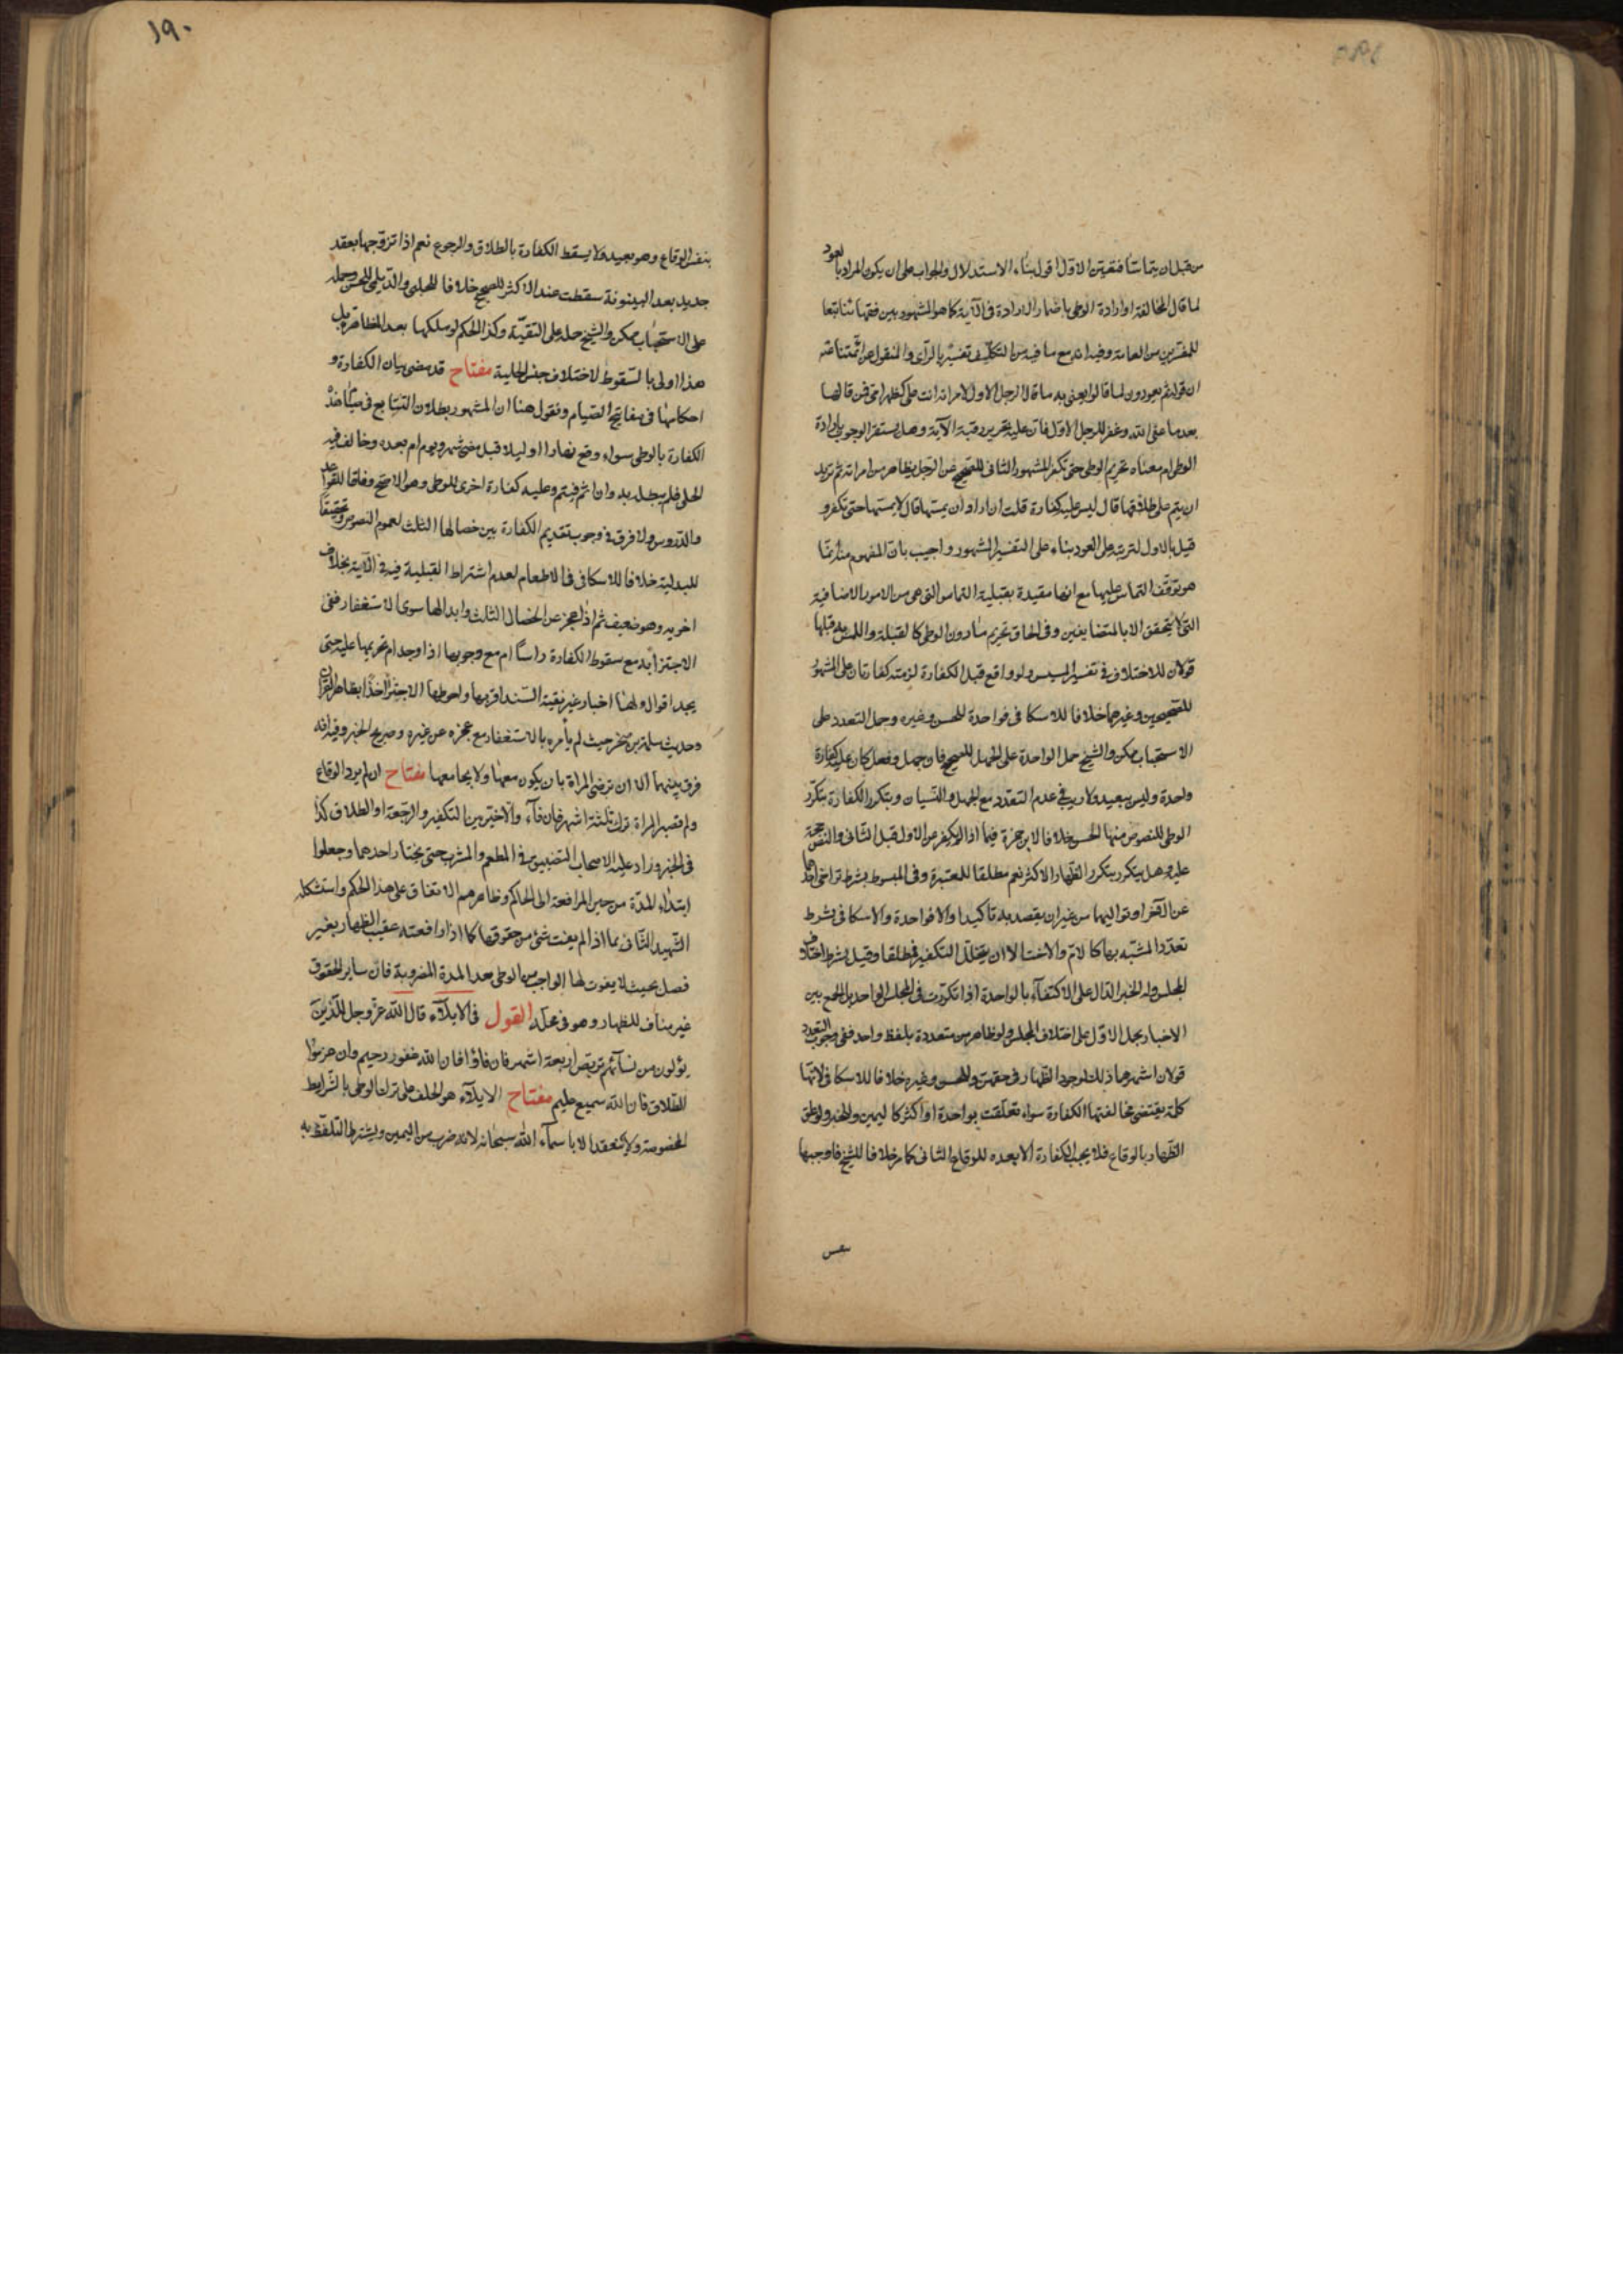 من قبل ان يتماسا فتعين الاول اقول بناء الاستدلال والجواب على ان يكون المراد بالعود
لما قال المخالفة او ارادة الوطى باضمار الارادة فى الآية كما هو المشهور بين فقهائنا تبعا
للمفسرين من العامة وفيه انه مع ما فيه من التكلف تفسير بالرأى والمنقول عن ائمتنا
ان قوله ثم يعودون لما قالوا يعنى به ما قال الرجل الاول لامراته انت على كظهر امى فمن قالها
بعد ما عفى الله وغفر للرجل الاول فان عليه تحرير رقبة الآية وهل يستقر الوجوب بارادة
الوطى ام معناه تحريم الوطى حتى يكفر المشهور الثانى للصحيح عن الرجل يظاهر من امراته ثم يريد
ان يتم على طلاقها قال ليس عليه كفارة قلت ان اراد ان يمسها قال لا يمسها حتى يكفر و
قيل بالاول لترتبه على العود بناء على التفسير المشهور واجيب بان المفهوم منه انما
هو توقف التماس عليها مع انها مقيدة بقبلية التماس التى هى من الامور الاضافية
التى لا يتحقق الا بالمتضايفين وفى الحاق تحريم ما دون الوطى كالقبلة واللمس به قبلها
قولان للاختلاف فى تفسير المسيس ولو واقع قبل الكفارة لزمته كفارتان على المشهور
للصحيحين وغيرهما خلافا للاسكافى فواحدة للحسن وغيره وحمل التعدد على
الاستحباب ممكن والشيخ حمل الواحدة على الجهل للصحيح فان جهل وفعل كان عليه كفارة
واحدة وليس ببعيد ولا ريب فى عدم التعدد مع الجهل والنسيان ويتكرر الكفارة بتكرر
الوطى للنصوص منها الحسن خلافا لابن حمزة فيما اذا لم يكفر عن الاول قبل الثانى والنص حجة
عليه وهل يتكرر بتكرر الظهار الاكثر نعم مطلقا للمعتبرة وفى المبسوط بشرط تراخى احدها
عن الآخر او تواليهما من غير ان يقصد به تاكيدا والا فواحدة والاسكافى بشرط
تعدد المشبه بها كالام والاخت الا ان يتخلل التكفير فمطلقا وقيل بشرط اختلاف
المجلس وله الخبر الدال على الاكتفاء بالواحدة اذا تكررت فى المجلس الواحد بل الجمع بين
الاخبار بحمل الاول على اختلاف المجلس ولو ظاهر من متعددة بلفظ واحد ففى وجوب التعدد
قولان اشهرهما ذلك لوجود الظهار فى حقهن وللحسن وغيره خلافا للاسكافى لانها
كلمة يقتضى مخالفتها الكفارة سواء تعلقت بواحدة او اكثر كاليمين وللخبر ولو علق
الظهار بالوقاع فلا يجب الكفارة الا بعده للوقاع الثانى كما مر خلافا للشيخ فاوجبها
بنفس
١٩٠
بنفس الوقاع وهو بعيد ولا يسقط الكفارة بالطلاق والرجوع نعم اذا تزوجها بعقد
جديد بعد البينونة سقطت عند الاكثر للصحيح خلافا للحلبى والديلمى للحسن وحمله
على الاستحباب ممكن والشيخ حمله على التقية وكذا الحكم لو ملكها بعد المظاهرة بل
هذا اولى بالسقوط لاختلاف جنس الحلية مفتاح قد مضى بيان الكفارة و
احكامها فى مفاتيح الصيام ونقول هنا ان المشهور بطلان التتابع فى صيام هذه
الكفارة بالوطى سواء وقع نهارا او ليلا قبل مضى شهر ويوم ام بعده وخالف فيه
الحلى فلم يبطل به وان اثم فيتم وعليه كفارة اخرى للوطى وهو الاصح وفاقا للقواعد
والدروس ولا فرق فى وجوب تقديم الكفارة بين خصالها الثلث لعموم النصوص وتحقيقا
للبدلية خلافا للاسكافى فى الاطعام لعدم اشتراط القبلية فيه فى الآية بخلاف
اخويه وهو ضعيف ثم اذا عجز عن الخصال الثلث وابدالها سوى الاستغفار ففى
الاجتزاء به مع سقوط الكفارة راسا ام مع وجوبها اذا وجد ام تحريمها عليه حتى
يجد اقوال ولها اخبار غير نقية السند اقربها واحوطها الاخير اخذا بظاهر القرآن
وحديث سلمة بن صخر حيث لم يأمره بالاستغفار مع عجزه عن غيره وصريح الخبر وفيه انه
فرق بينهما الا ان ترضى المراة بان يكون معها ولا يجامعها مفتاح ان لم يرد الوقاع
ولم تصبر المراة ترك ثلثة اشهر فان فآء والا خير بين التكفير والرجعة او الطلاق كذا
فى الخبر وزاد عليه الاصحاب التضييق فى المطعم والمشرب حتى يختار احدهما وجعلوا
ابتداء المدة من حين المرافعة الى الحاكم وظاهرهم الاتفاق على هذا الحكم واستشكله
الشهيد الثانى بما اذا لم يفت شئ من حقوقها كما اذا رافعته عقيب الظهار بغير
فصل بحيث لا يفوت لها الواجب من الوطى بعد المدة المضروبة فان ساير الحقوق
غير مناف للظهار وهو فى محله القول فى الايلآء قال الله عز وجل للذين
يؤلون من نسآئهم تربص اربعة اشهر فان فاؤا فان الله غفور رحيم وان عزموا
الطلاق فان الله سميع عليم مفتاح الايلآء هو الحلف على ترك الوطى بالشرايط
المخصوصة ولا ينعقد الا باسمآء الله سبحانه لانه ضرب من اليمين ويشترط التلفظ به